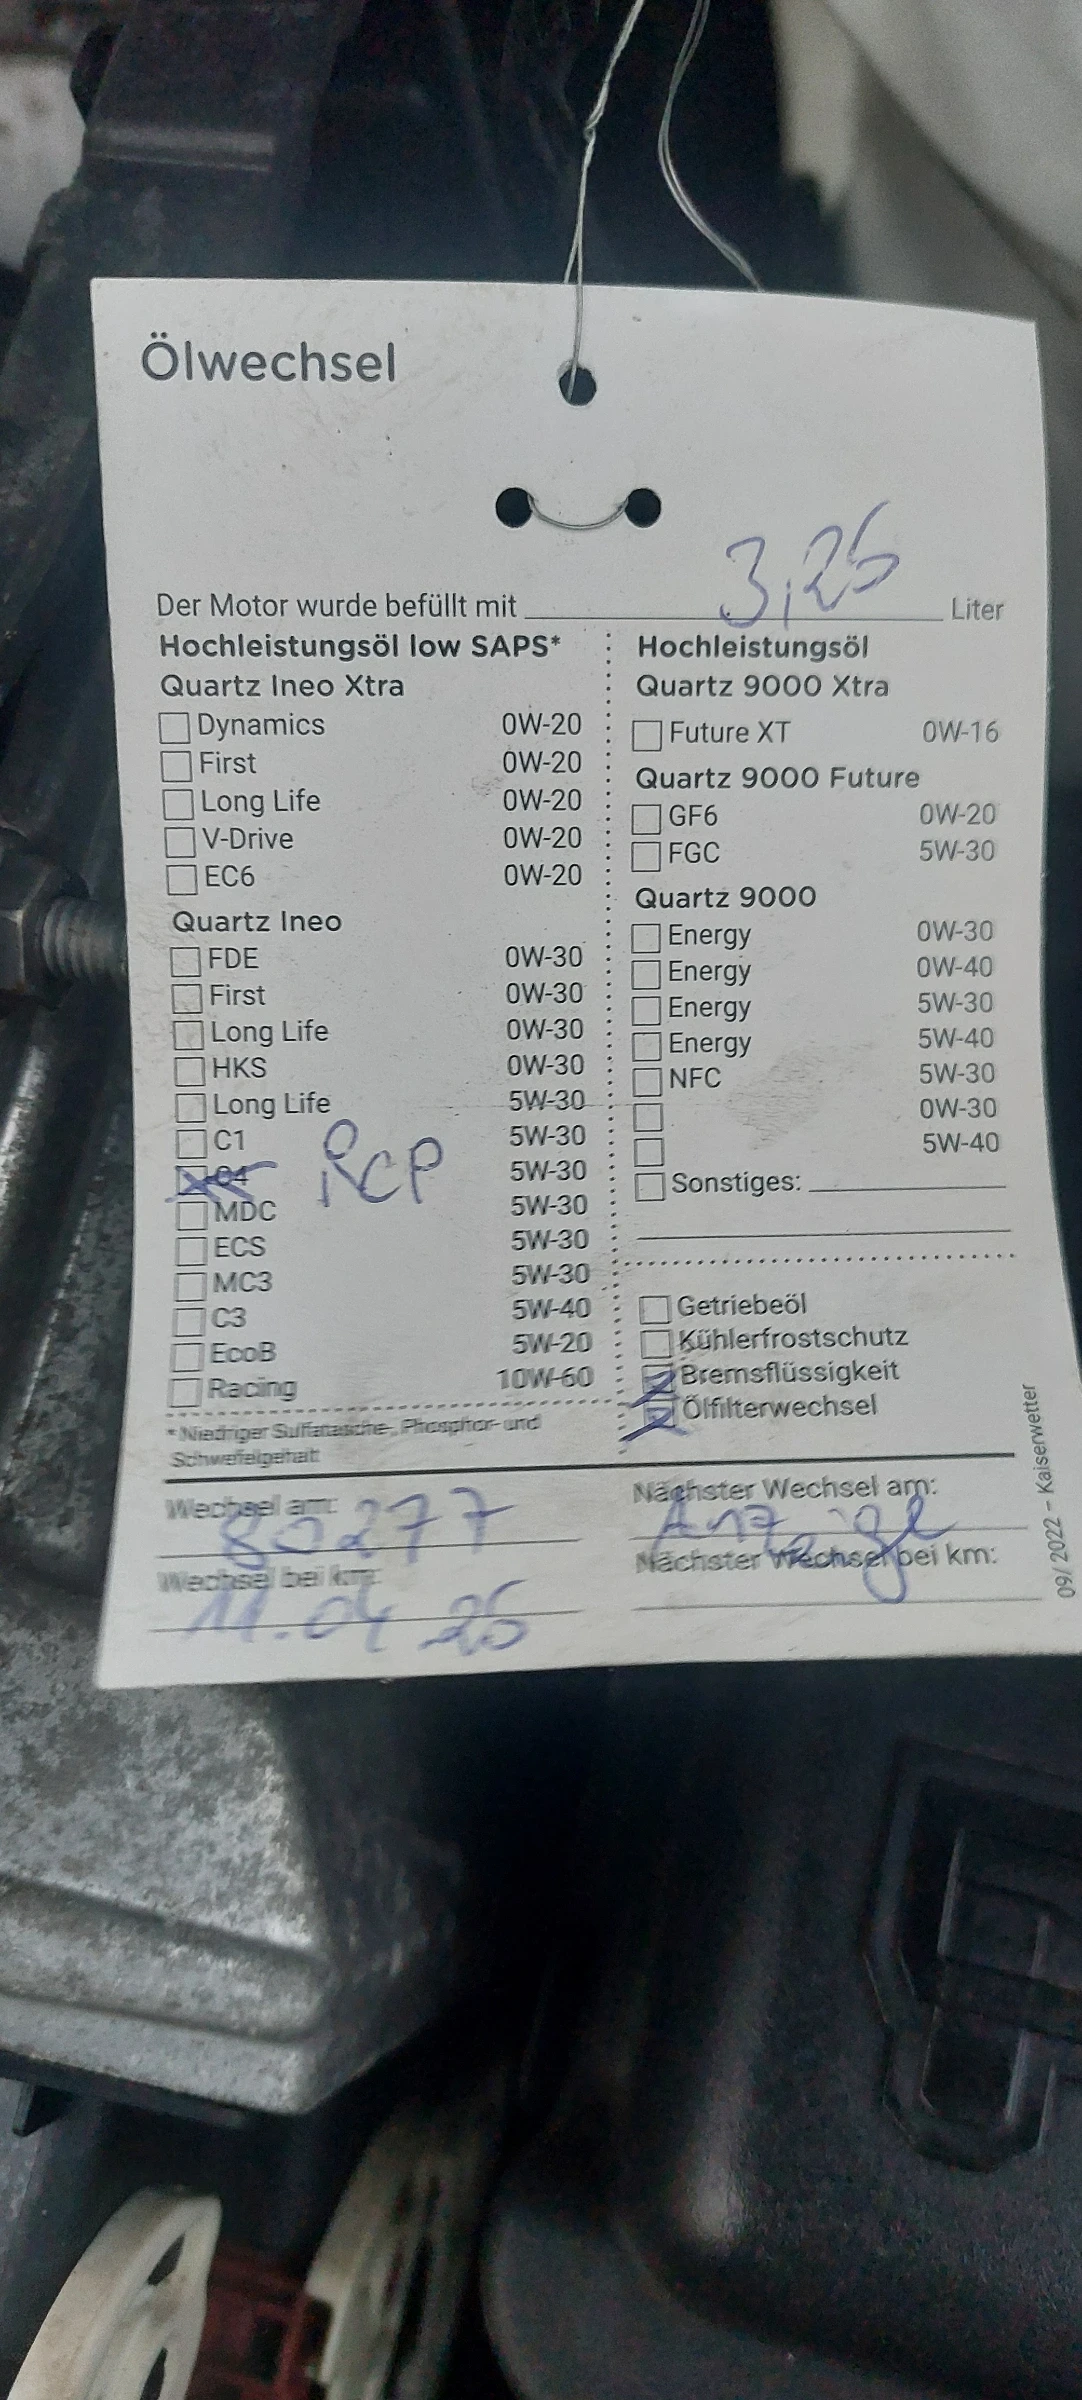 Ölwechsel
Der Motor wurde befüllt mit 3,25 Liter
Hochleistungsöl low SAPS*
Quartz Ineo Xtra
Dynamics 0W-20
First 0W-20
Long Life 0W-20
V-Drive 0W-20
EC6 0W-20
Quartz Ineo
FDE 0W-30
First 0W-30
Long Life 0W-30
HKS 0W-30
Long Life 5W-30
C1 5W-30
C4 RCP 5W-30
MDC 5W-30
ECS 5W-30
MC3 5W-30
C3 5W-40
EcoB 5W-20
Racing 10W-60
*Niedriger Sulfatasche-, Phosphor- und
Schwefelgehalt
Hochleistungsöl
Quartz 9000 Xtra
Future XT 0W-16
Quartz 9000 Future
GF6 0W-20
FGC 5W-30
Quartz 9000
Energy 0W-30
Energy 0W-40
Energy 5W-30
Energy 5W-40
NFC 5W-30
0W-30
5W-40
Sonstiges:
Getriebeöl
Kühlerfrostschutz
Bremsflüssigkeit
Ölfilterwechsel
Wechsel am:
80277
Wechsel bei km:
11.04 25
Nächster Wechsel am:
Anzeige
Nächster Wechsel bei km:
09/2022 – Kaiserwetter